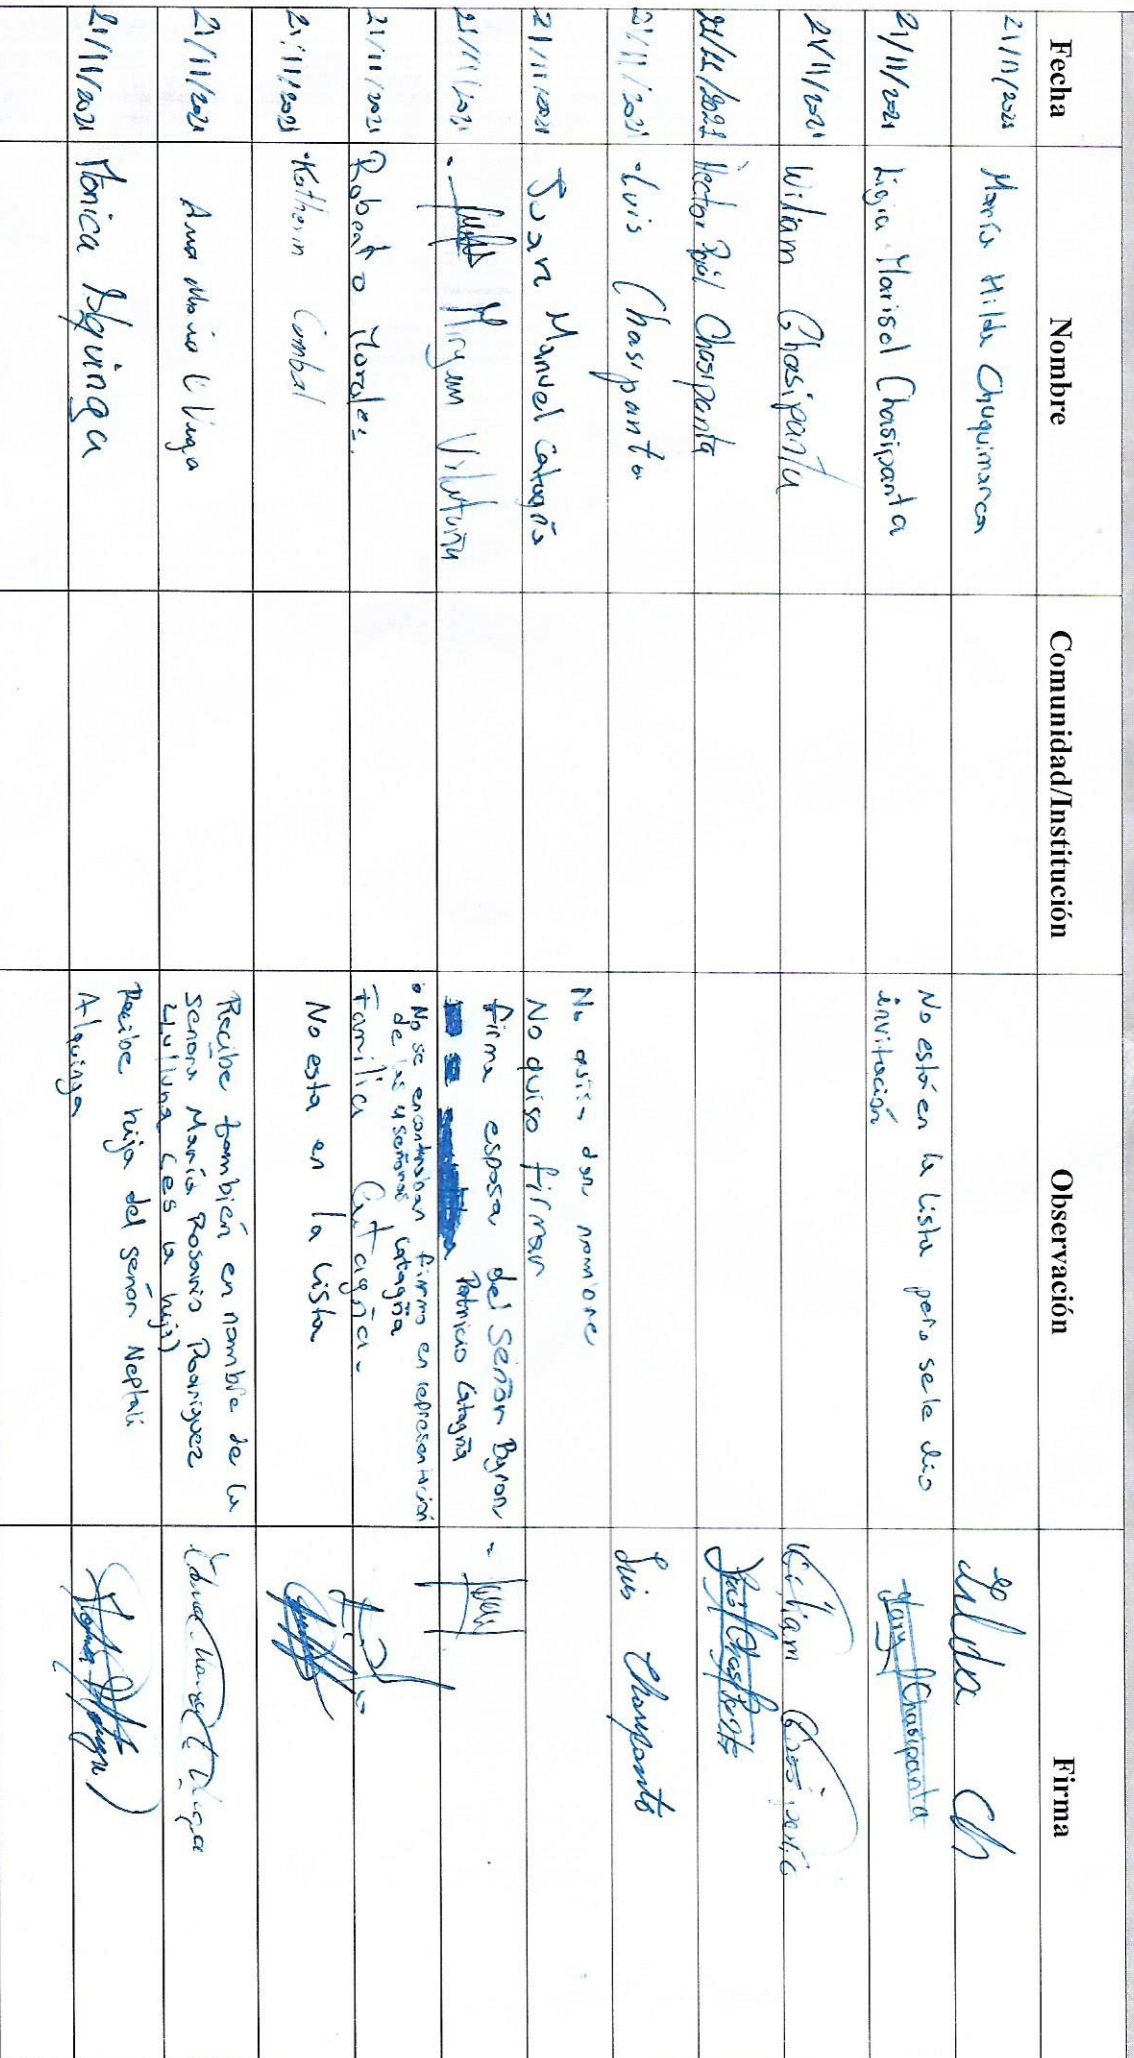 Fecha Nombre Comunidad/Institución Observación Firma
21/11/2021 María Hilda Chuquimarca Hilda Ch
21/11/2021 Ligia Marisol Chasipanta No está en la lista pero se le dio
invitación Chasipanta
21/11/2021 Wiliam Chasipanta Wiliam Chasipanta
21/11/2021 Hector Raúl Chasipanta
21/11/2021 Luis Chasipanta Luis Chasipanta
21/11/2021 Juan Manuel Catagña No quiso dar nombre
No quiso firmar
21/11/2021 Miryam firma esposa del Señor Byron
Patricio Catagña
21/11/2021 Roberto Morales. No se encontraban firmo en representación
de las 4 señoras Catagña
Familia Catagña.
21/11/2021 Katherin Cumbal No esta en la lista
21/11/2021 Ana María Recibe también en nombre de la
Señora María Rosario Rodriguez
(es la hija)
21/11/2021 Mónica Alquinga Recibe hija del señor Neptali
Alquinga